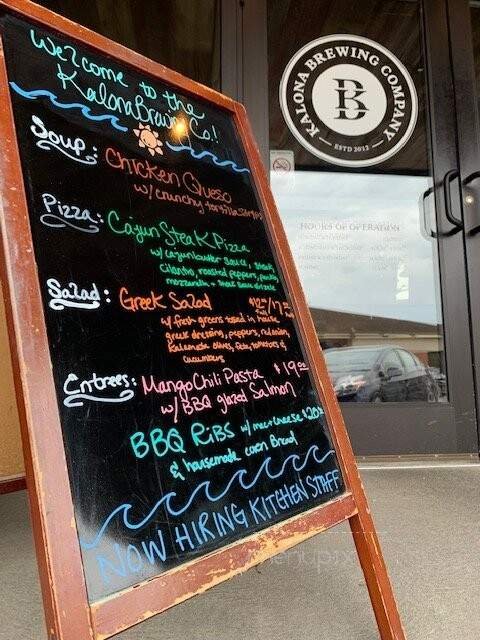 Welcome to the
Kalona Brew Co.!
Soup: Chicken Queso
w/ crunchy tortilla strips
Pizza: Cajun Steak Pizza
w/ cajun butter sauce, steak,
cilantro, roasted peppers,
mozzarella + steak sauce drizzle
Salad: Greek Salad
w/ fresh greens tossed in house
greek dressing, peppers, red onion,
kalamata olives, feta, tomatoes &
cucumbers
Entrees: Mango Chili Pasta $19.00
w/ BBQ glazed Salmon
BBQ Ribs w/ mac + cheese
& housemade corn Bread
NOW HIRING KITCHEN STAFF
KALONA BREWING COMPANY
KB
ESTD 2012
HOURS OF OPERATION